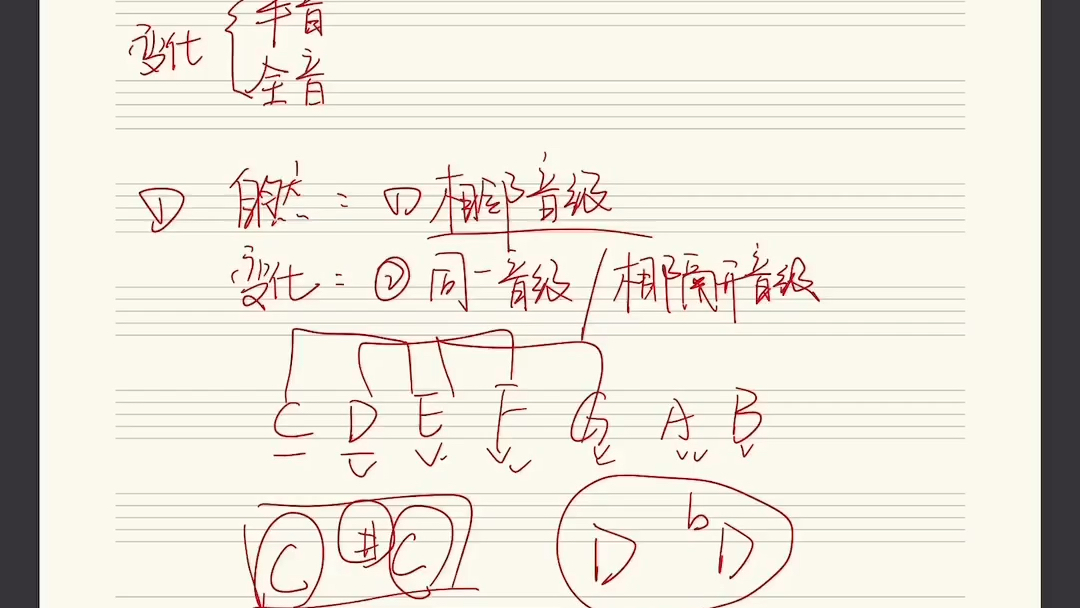 变化 { 半音
全音
① 自然：① 相邻音级
变化：② 同一音级 / 相隔开音级
C D E F G A B
C #C D bD